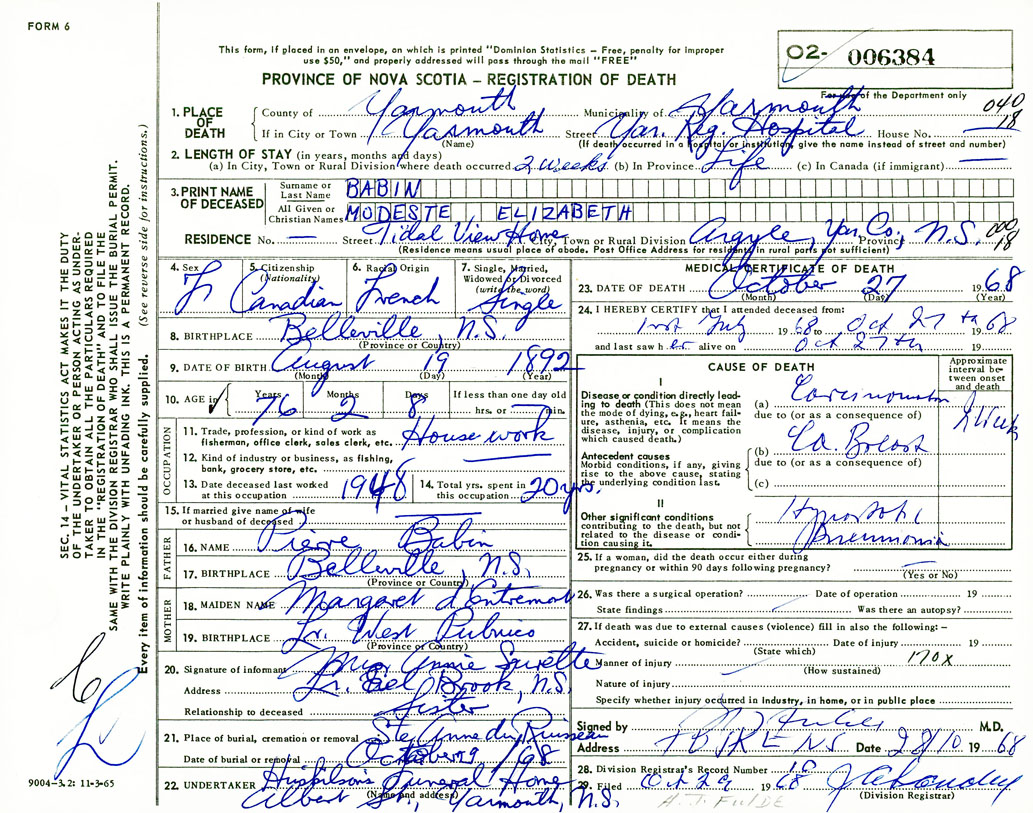 FORM 6
This form, if placed in an envelope, on which is printed "Dominion Statistics – Free, penalty for improper
use $50," and properly addressed will pass through the mail "FREE"
PROVINCE OF NOVA SCOTIA – REGISTRATION OF DEATH
02- 006384
For use of the Department only
040
18
1. PLACE OF DEATH County of Yarmouth Municipality of Yarmouth
If in City or Town Yarmouth Street Yar. Reg. Hospital House No. —
(Name) (If death occurred in a hospital or institution, give the name instead of street and number)
2. LENGTH OF STAY (in years, months and days)
(a) In City, Town or Rural Division where death occurred 2 weeks (b) In Province Life (c) In Canada (if immigrant) —
3. PRINT NAME OF DECEASED Surname or Last Name BABIN
All Given or Christian Names MODESTE ELIZABETH
RESIDENCE No. — Street Tidal View Home City, Town or Rural Division Argyle, Yar. Co. Province N.S.
18
(Residence means usual place of abode. Post Office Address for residents in rural parts not sufficient)
4. Sex F 5. Citizenship (Nationality) Canadian 6. Racial Origin French 7. Single, Married, Widowed or Divorced (write the word) Single
8. BIRTHPLACE Belleville, N.S.
(Province or Country)
9. DATE OF BIRTH August 19 1892
(Month) (Day) (Year)
10. AGE in Years 76 Months 2 Days 8 If less than one day old
hrs. or — min.
OCCUPATION
11. Trade, profession, or kind of work as fisherman, office clerk, sales clerk, etc. House work
12. Kind of industry or business, as fishing, bank, grocery store, etc. —
13. Date deceased last worked at this occupation 1948 14. Total yrs. spent in this occupation 20 yrs.
15. If married give name of wife or husband of deceased —
FATHER
16. NAME Pierre Babin
17. BIRTHPLACE Belleville, N.S.
(Province or Country)
MOTHER
18. MAIDEN NAME Margaret d'Entremont
19. BIRTHPLACE Lr. West Pubnico
(Province or Country)
20. Signature of informant Mrs. Annie Surette
Address Lr. Eel Brook, N.S.
Relationship to deceased Sister
21. Place of burial, cremation or removal Ste. Anne du Ruisseau
Date of burial or removal October 29 1968
22. UNDERTAKER Huskilson's Funeral Home
(Name and address) Albert St., Yarmouth, N.S.
MEDICAL CERTIFICATE OF DEATH
23. DATE OF DEATH October 27 1968
(Month) (Day) (Year)
24. I HEREBY CERTIFY that I attended deceased from:
1st July 1968 to Oct 27th 1968
and last saw her alive on Oct 27th 19
CAUSE OF DEATH
Approximate interval between onset and death
I
Disease or condition directly leading to death (This does not mean the mode of dying, e.g., heart failure, asthenia, etc. It means the disease, injury, or complication which caused death.)
(a) Carcinomatosis
due to (or as a consequence of)
Antecedent causes
Morbid conditions, if any, giving rise to the above cause, stating the underlying condition last.
(b) Ca. Breast
due to (or as a consequence of)
(c)
II
Other significant conditions contributing to the death, but not related to the disease or condition causing it.
Hypostatic
Pneumonia
25. If a woman, did the death occur either during
pregnancy or within 90 days following pregnancy? —
(Yes or No)
26. Was there a surgical operation? Date of operation 19
State findings Was there an autopsy?
27. If death was due to external causes (violence) fill in also the following: –
Accident, suicide or homicide? Date of injury 19
(State which)
Manner of injury 170X
(How sustained)
Nature of injury
Specify whether injury occurred in Industry, in home, or in public place
Signed by M.D.
Address Date 28/10 1968
28. Division Registrar's Record Number 18
29. Filed Oct 29 1968
(Division Registrar)
H.J. FULDE
SEC. 14 – VITAL STATISTICS ACT MAKES IT THE DUTY
OF THE UNDERTAKER OR PERSON ACTING AS UNDER-
TAKER TO OBTAIN ALL THE PARTICULARS REQUIRED
IN THE "REGISTRATION OF DEATH" AND TO FILE THE
SAME WITH THE DIVISION REGISTRAR WHO SHALL ISSUE THE BURIAL PERMIT.
WRITE PLAINLY WITH UNFADING INK. THIS IS A PERMANENT RECORD.
Every item of information should be carefully supplied. (See reverse side for instructions.)
9004–3.2: 11-3-65